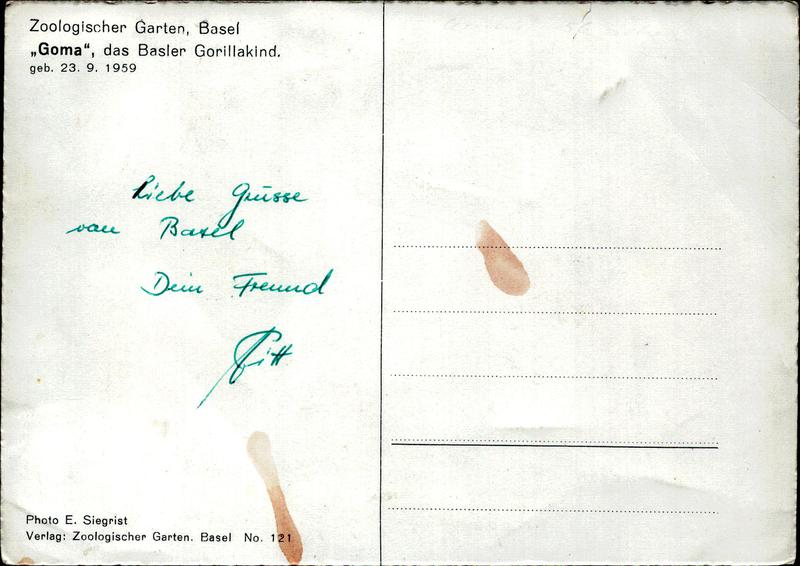 Zoologischer Garten, Basel
„Goma“, das Basler Gorillakind.
geb. 23. 9. 1959
Liebe Grüsse
von Basel
Dein Freund
Pitt
Photo E. Siegrist
Verlag: Zoologischer Garten. Basel No. 121